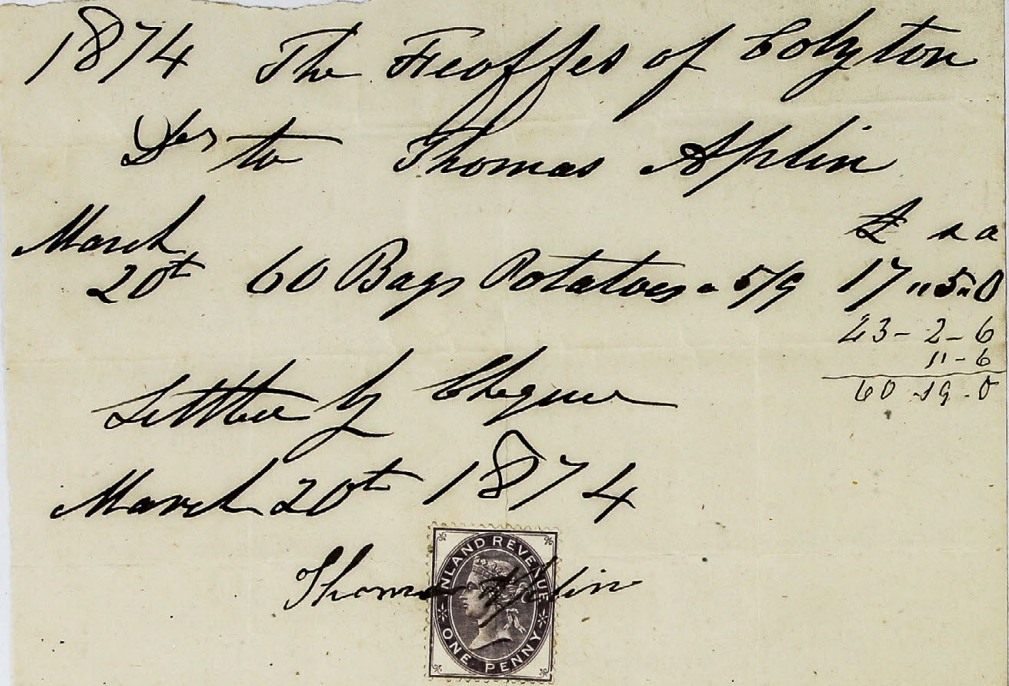 1874 The Feoffes of Colyton
Drs to Thomas Aplin
£ s d
March
20th 60 Bags Potatoes - 5/9 17 " 5 " 0
43 - 2 - 6
11 - 6
60 - 19 - 0
Settled by Cheque
March 20th 1874
Thomas Aplin
INLAND REVENUE
ONE PENNY